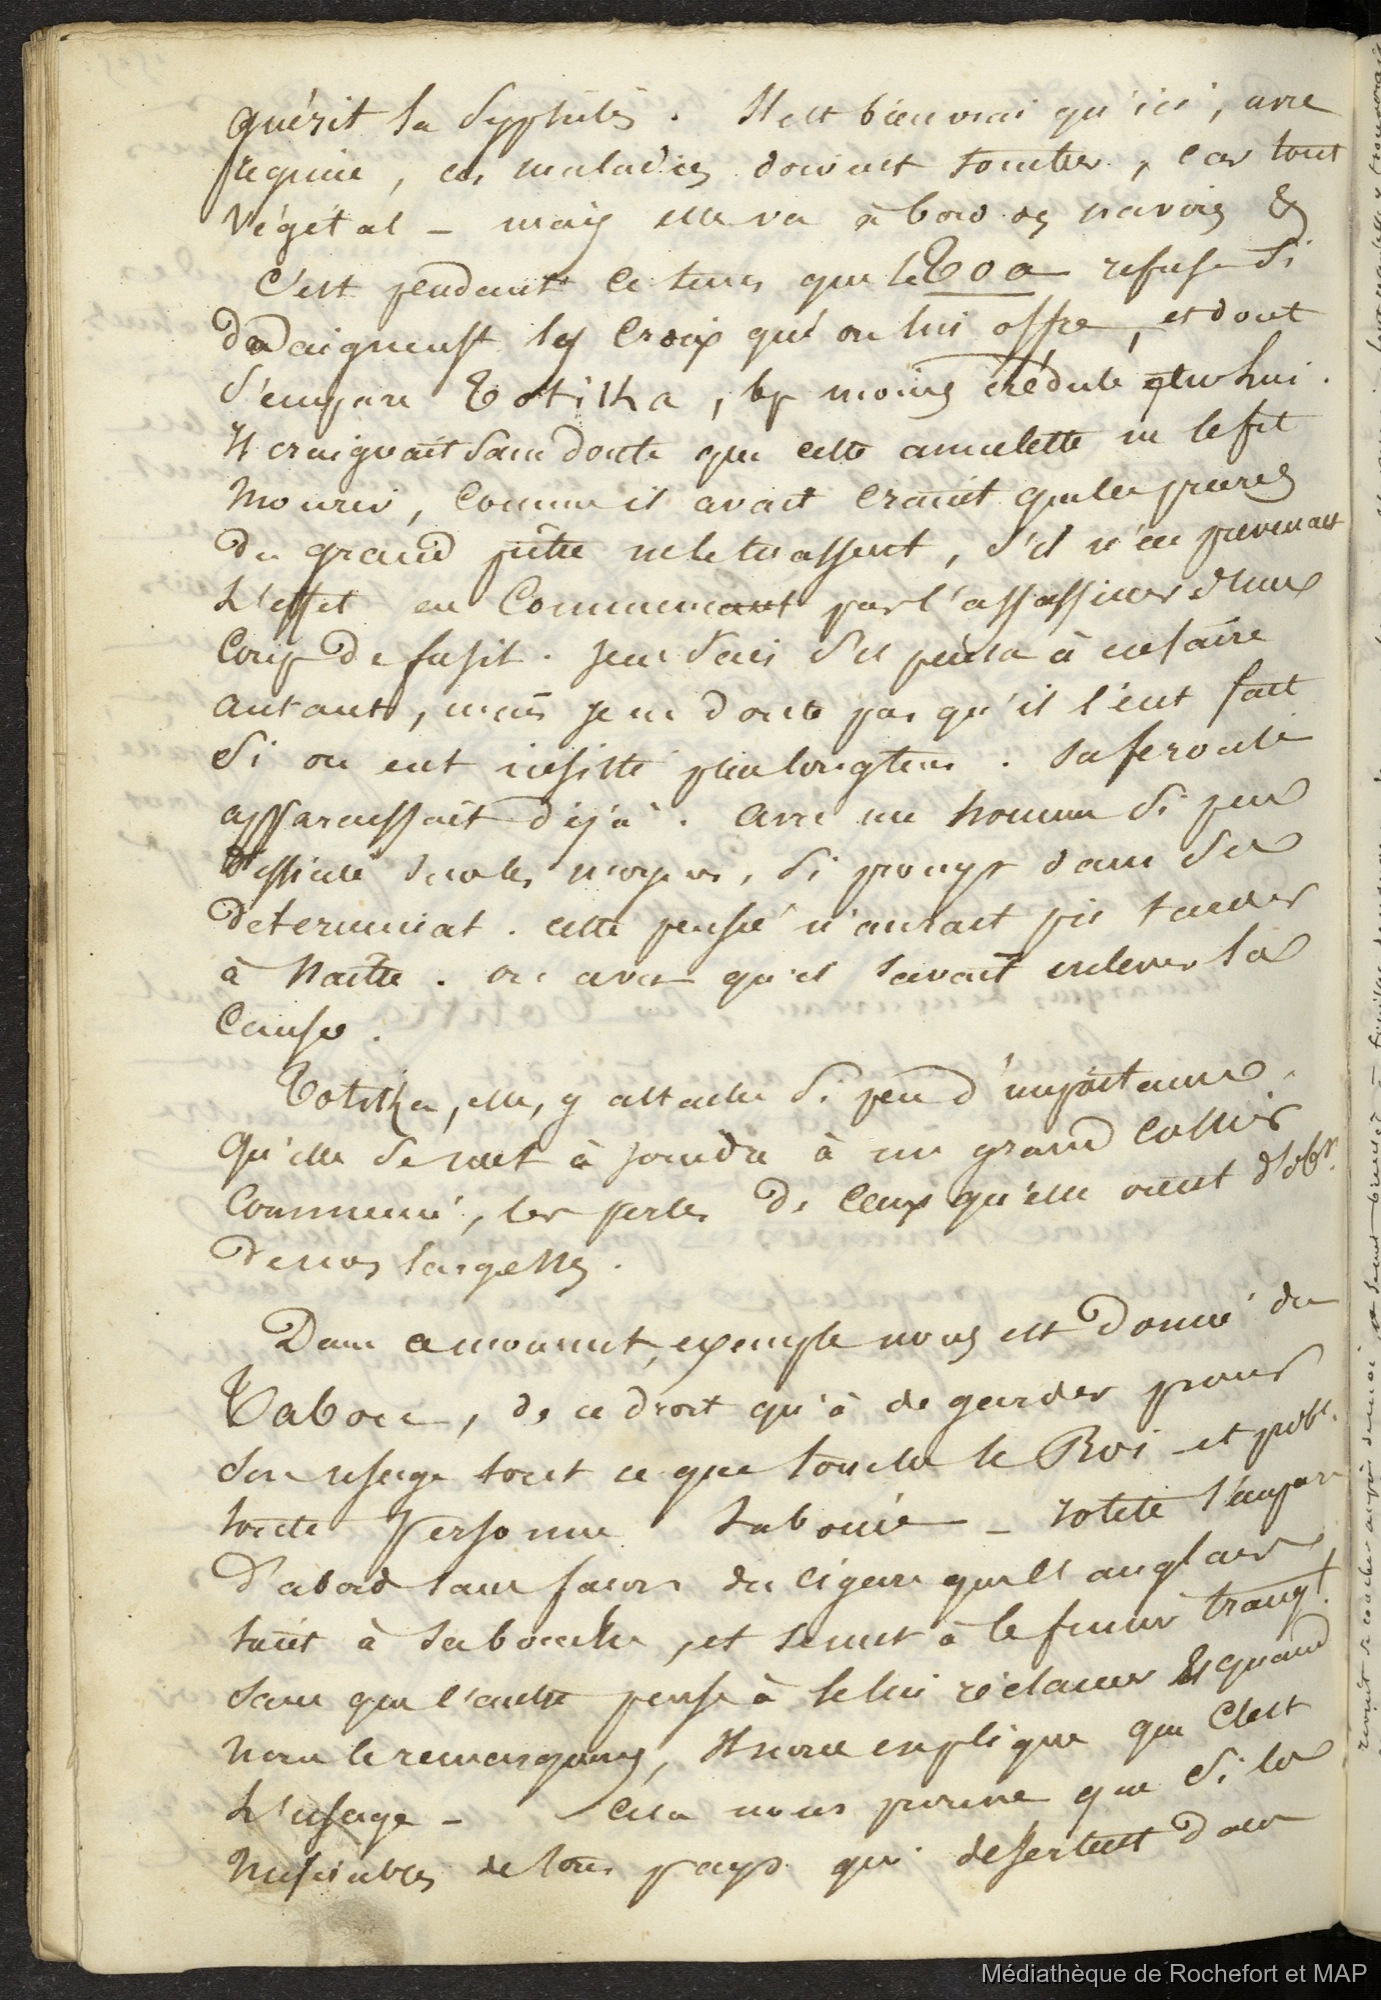 guérit la Syphilis. Il est bien vrai qu'ici, avec
regime, ces maladies doivent tomber, car tout
végétal - mais elle va à bord des navires &
C'est pendant ce tems que le Toa refuse si
dedaigneust les croix qu'on lui offre, et dont
s'empare Totika, moins crédule que lui.
Il craignait sans doute que cette amulette ne le fit
mourir, comme il avait craint que les prieres
du grand prêtre ne le tuassent, s'il n'en prevenait
l'effet en commencant par l'assassiner d'un
coup de fusil. Je ne sais s'il pensa à en faire
autant, mais je ne doute pas qu'il l'eut fait
si on eut insisté plus longtems. Sa ferocité
apparaissait déjà. Avec un homme si peu
sur les moyens, si prompt dans ses
determinat. cette pensée n'aurait pu tarder
à naitre. on a vu qu'il savait enlever la
cause.
Totika, elle, y attache si peu d'importance,
qu'elle se met à joindre à un grand collier
commencé, les perles de ceux qu'elle vient d'obr.
de nos largesses.
Dans ce moment, exemple nous est donné du
Tabou, de ce droit qu'à de garder pour
son usage tout ce que touche le Roi - et probt.
toute personne tabouée - s'empare
d'abord sans facon du cigare que l'anglais
tient à sa bouche, et se met à le fumer tranqt.
sans que l'autre pense à le lui réclamer Et quand
nous le remarquons, Il nous explique que C'est
L'usage - Cela nous prouve que si les
miserables de tous pays qui desertent dans